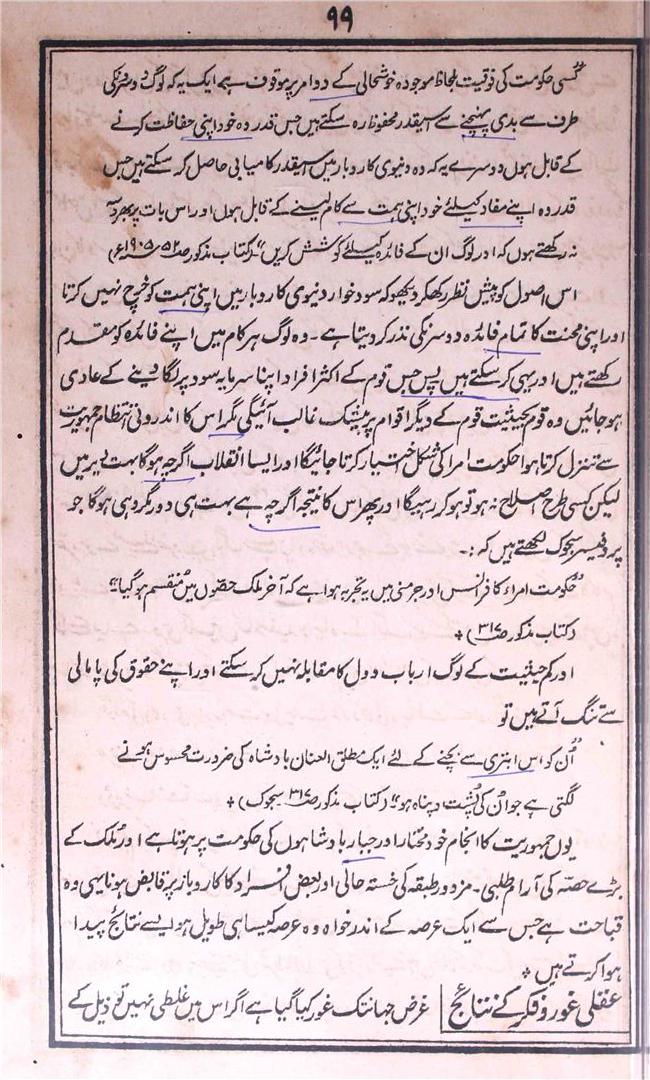 ۹۹
"کسی حکومت کی فوقیت بلحاظ موجودہ خوشحالی کے دو امر پر موقوف ہے ایک یہ کہ لوگ دوسرونکی
طرف سے بدی پہنچنے سے اسیقدر محفوظ رہ سکتے ہیں جس قدر وہ خود اپنی حفاظت کرنے
کے قابل ہوں دوسرے یہ کہ وہ دنیوی کاروبار میں اسیقدر کامیابی حاصل کر سکتے ہیں جس
قدر وہ اپنے مفاد کیلئے خود اپنی ہمت سے کام لینے کے قابل ہوں اور اس بات پر بھروسہ
نہ رکھتے ہوں کہ اور لوگ ان کے فائدہ کیلئے کوشش کریں" (کتاب مذکور صـ ۵۲ ۱۹۰۵ء)
اس اصول کو پیش نظر رکھکر دیکھو کہ سود خوار دنیوی کاروبار میں اپنی ہمت کو خرچ نہیں کرتا
اور اپنی محنت کا تمام فائدہ دوسرنکی نذر کر دیتا ہے۔ وہ لوگ ہر کام میں اپنے فائدہ کو مقدم
رکھتے ہیں اور یہی کر سکتے ہیں پس جس قوم کے اکثر افراد اپنا سرمایہ سود پر لگا دینے کے عادی
ہو جائیں وہ قوم بحیثیت قوم کے دیگر اقوام پر بیشک غالب آئیگی مگر اس کا اندرونی انتظام جمہوریت
سے تنزل کرتا ہوا حکومت امرا کی شکل اختیار کرتا جائیگا اور ایسا انقلاب اگرچہ ہوگا بہت دیر میں
لیکن کسی طرح اصلاح نہ ہو تو ہو کر رہیگا اور پھر اس کا نتیجہ اگرچہ ہے بہت ہی دور مگر وہی ہوگا جو
پروفیسر سجوک لکھتے ہیں کہ :۔
"حکومت امراء کا فرانس اور جرمنی میں یہ تجربہ ہوا ہے کہ آخر ملک حصوں میں منقسم ہو گیا"
(کتاب مذکور صـ ۳۱۷) ٭
اور کم حیثیت کے لوگ ارباب دول کا مقابلہ نہیں کر سکتے اور اپنے حقوق کی پامالی
سے تنگ آتے ہیں تو
"اُن کو اس ابتری سے بچنے کے لئے ایک مطلق العنان بادشاہ کی ضرورت محسوس ہونے
لگتی ہے جو اُن کی پُشت و پناہ ہو" (کتاب مذکور صـ ۳۱۷ سجوک) ٭
یوں جمہوریت کا انجام خود مختار اور جبار بادشاہوں کی حکومت پر ہوتا ہے اور ملک کے
بڑے حصّہ کی آرام طلبی۔ مزدور طبقہ کی خستہ حالی اور بعض افراد کا کاروبار پر قابض ہونا یہی وہ
قباحت ہے جس سے ایک عرصہ کے اندر خواہ وہ عرصہ کیسا ہی طویل ہو ایسے نتائج پیدا
ہوا کرتے ہیں ٭
عقلی غور و فکر کے نتائج | غرض جہانتک غور کیا گیا ہے اگر اس میں غلطی نہیں تو ذیل کے